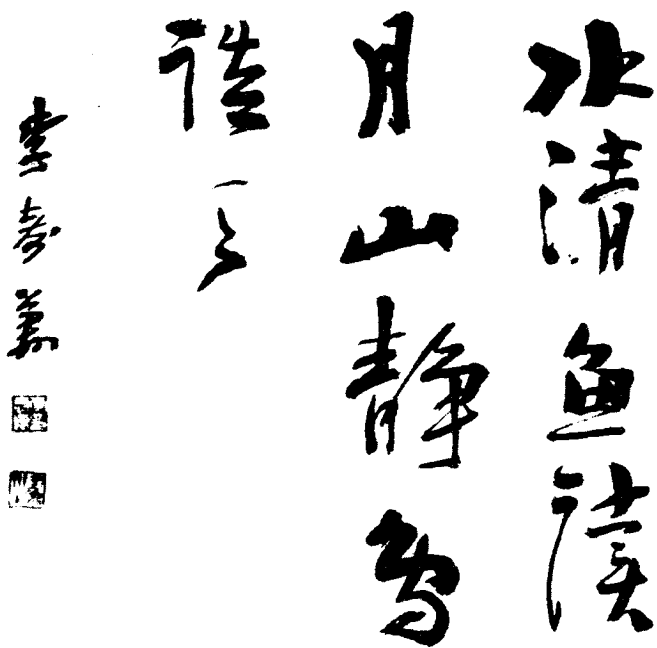 水清鱼读
月山静鸟
谈天
李